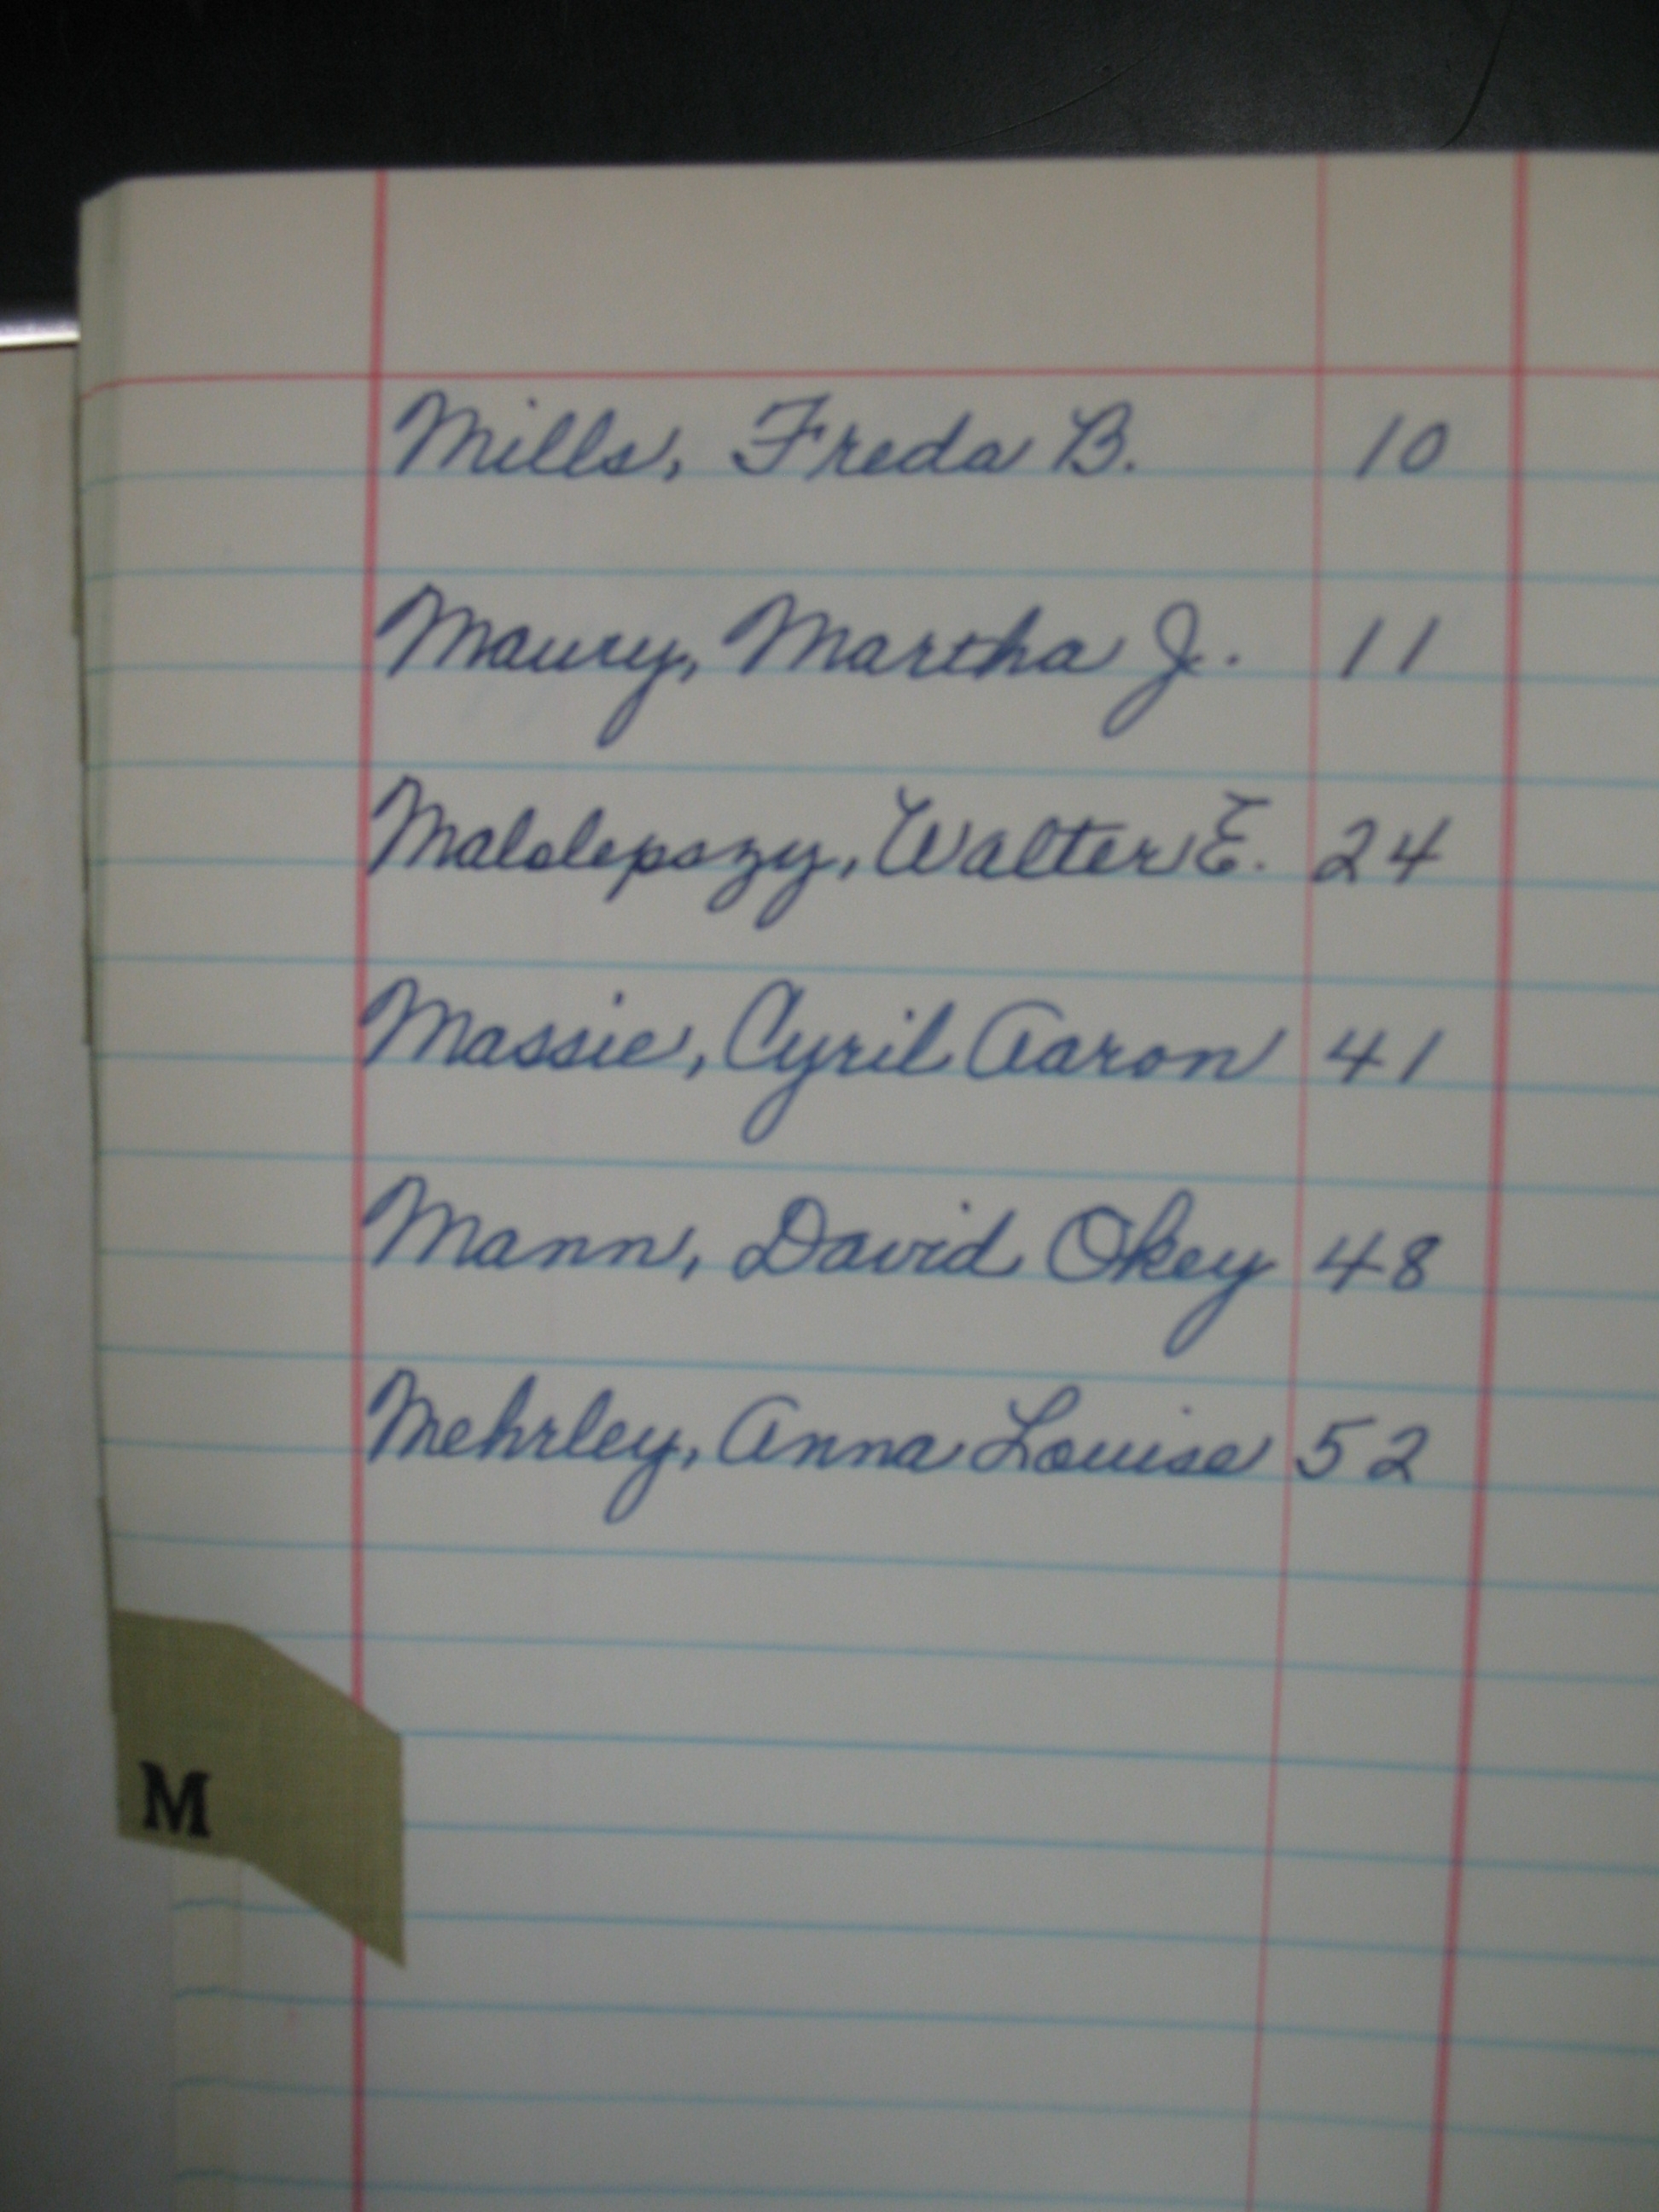 Mills, Freda B. 10
Maury, Martha J. 11
Malolepszy, Walter E. 24
Massie, Cyril Aaron 41
Mann, David Okey 48
Mehrley, Anna Louise 52
M